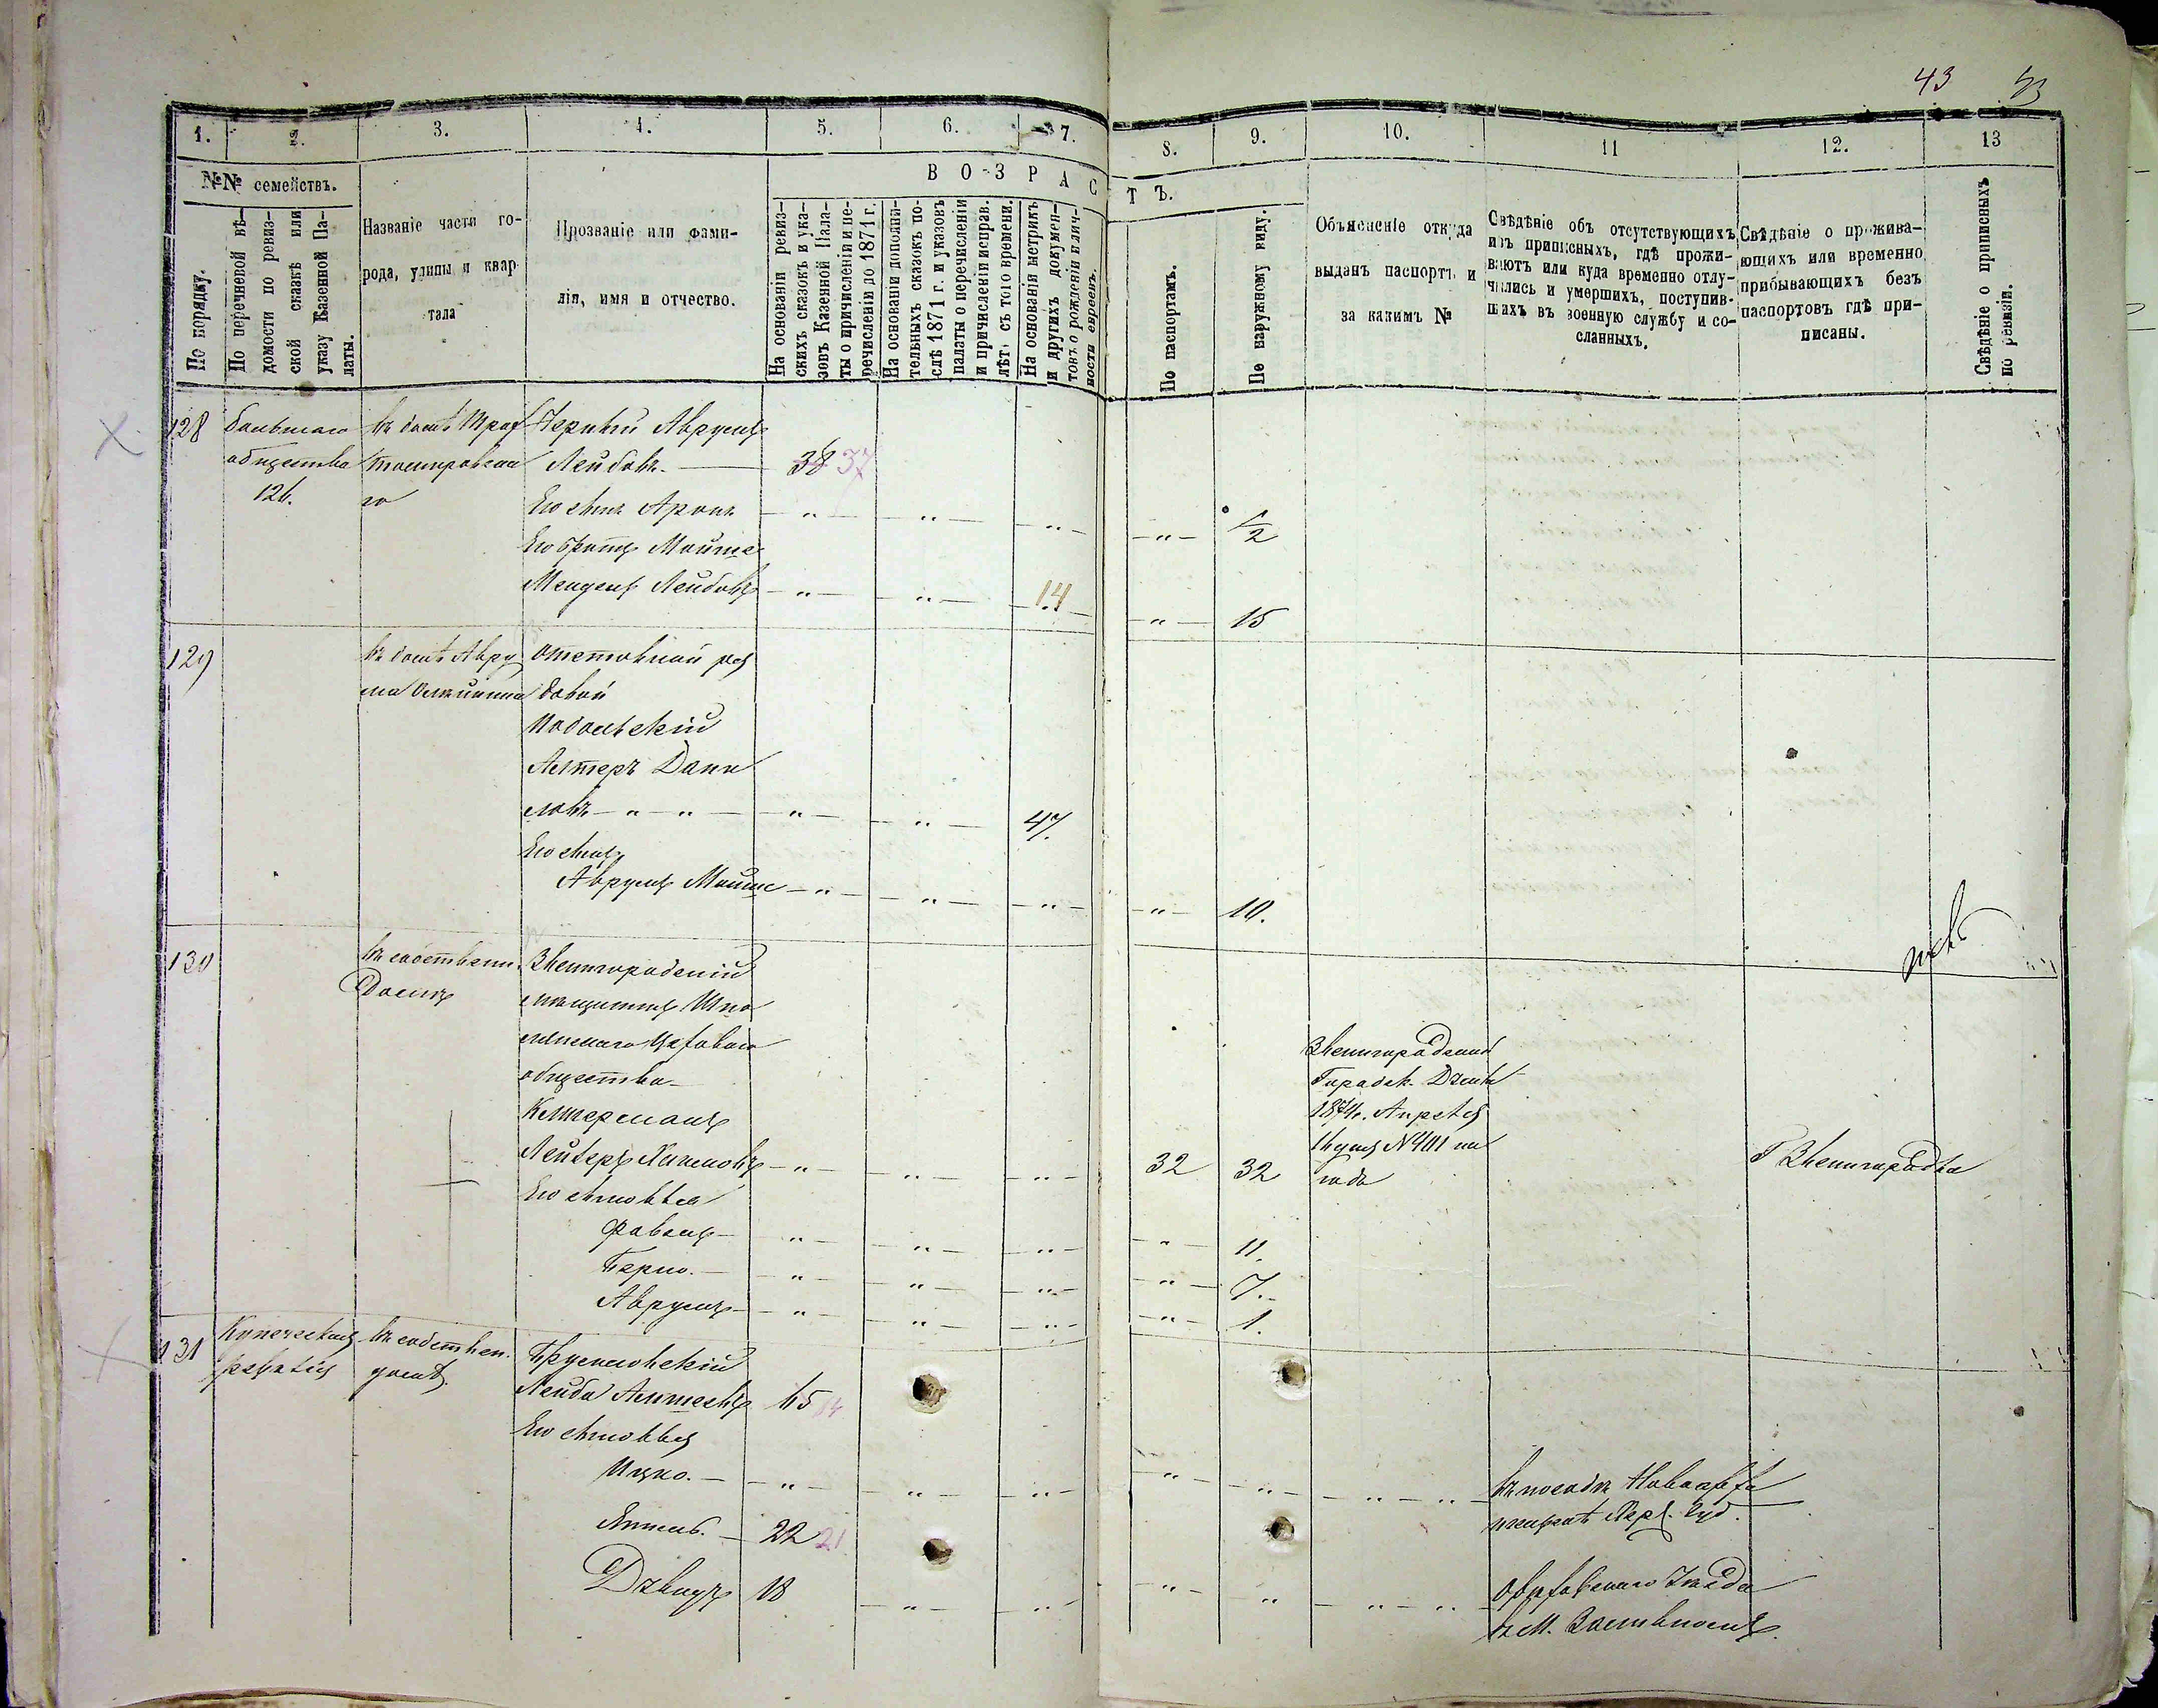 43
1.
2.
3.
4.
5.
6.
7.
8.
9.
10.
11
12.
13
№№ семействъ.
По порядку.
По перечневой вѣ-
домости по ревиз-
ской сказкѣ или
указу Казенной Па-
латы.
Названіе части го-
рода, улицы и квар-
тала
Прозваніе или фами-
лія, имя и отчество.
ВОЗРАСТЪ.
На основаніи ревиз-
скихъ сказокъ и ука-
зовъ Казенной Пала-
ты о причисленіи и пе-
речисленіи до 1871 г.
На основаніи дополни-
тельныхъ сказокъ по-
слѣ 1871 г. и указовъ
палаты о перечисленіи
и причисленіи исправ.
лѣтъ съ того времени.
На основаніи метрикъ
и другихъ докумен-
товъ о рожденіи и лич-
ности евреевъ.
По паспортамъ.
По наружному виду.
Объясненіе откуда
выданъ паспортъ и
за какимъ №
Свѣдѣніе объ отсутствующихъ
изъ приписныхъ, гдѣ прожи-
ваютъ или куда временно отлу-
чились и умершихъ, поступив-
шихъ въ военную службу и со-
сланныхъ.
Свѣдѣніе о прожива-
ющихъ или временно
прибывающихъ безъ
паспортовъ гдѣ при-
писаны.
Свѣдѣніе о приписныхъ
по ревизіи.
128
общества
126.
въ домѣ
го
Черный Аврумъ
Лейбовъ. 38 37
Его сынъ Аронъ 1/2
Его братъ Мойше
Мендель Лейбовъ 14 15
129
въ домѣ Авру
ма
отставной ря
довой
Подольскій
Алтеръ Дани
ловъ 47.
Его сынъ
Аврумъ Мойше 10.
130
въ собствен.
домѣ
Звенигородскій
мѣщанинъ Шпо
лянскаго
общества
Кельтерманъ
Лейзеръ Хаимовъ 32 32
Звенигородской
Городск. Думы
1874. Апрѣля
16 дня № 401 на
года
Г Звенигородка
Его сыновья
11.
Берко. 7.
Аврумъ 1.
131
Купеческая
ревизія
въ собствен.
домѣ.
Бруславскій
Лейба 65 64
Его сыновья
Ицко.
въ посадѣ Новоархан
гельскѣ Хер. Губ.
22 21
Давидъ 18
уѣзда
въ м.